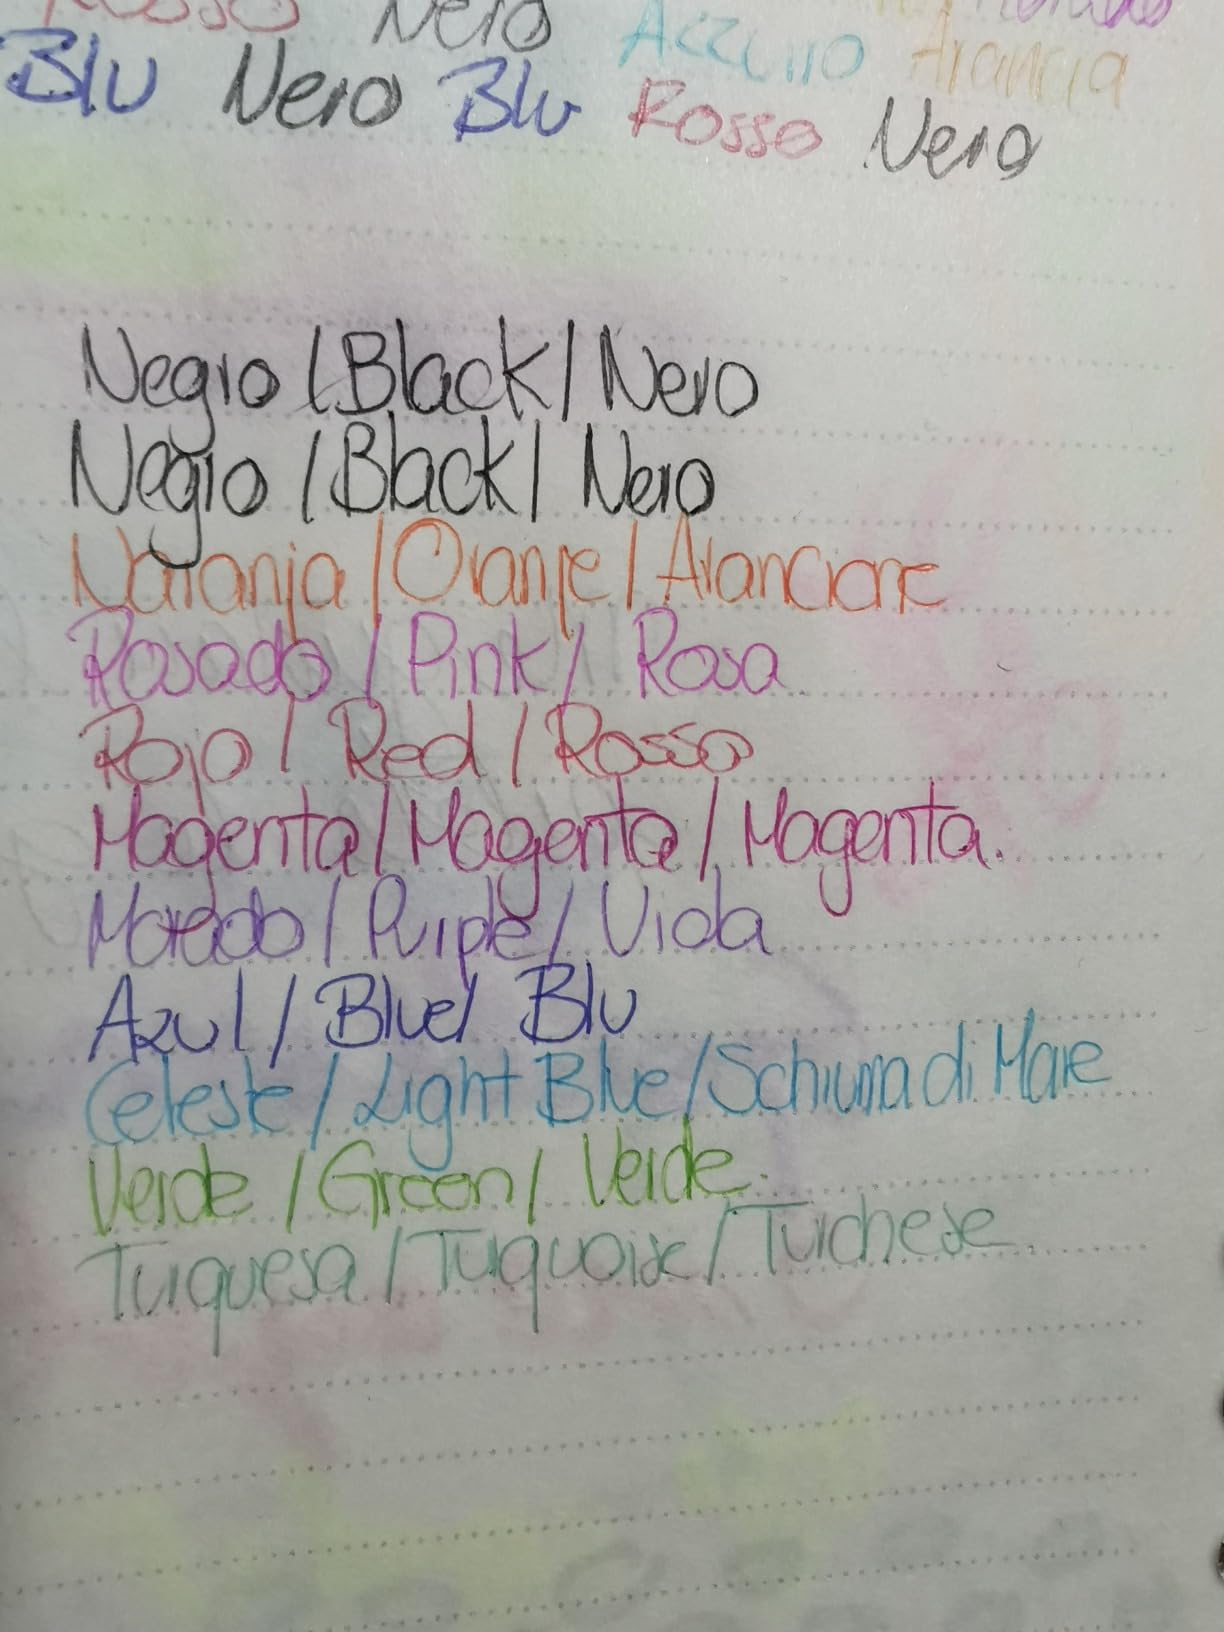 Rosso Nero
Azzurro Arancia
Blu Nero Blu Rosso Nero
Negro / Black / Nero
Negro / Black / Nero
Naranja / Oranje / Arancione
Rosado / Pink / Rosa
Rojo / Red / Rosso
Magenta / Magenta / Magenta.
Morado / Purple / Viola
Azul / Blue / Blu
Celeste / Light Blue / Schiuma di Mare
Verde / Green / Verde.
Turquesa / Tuquoise / Turchese